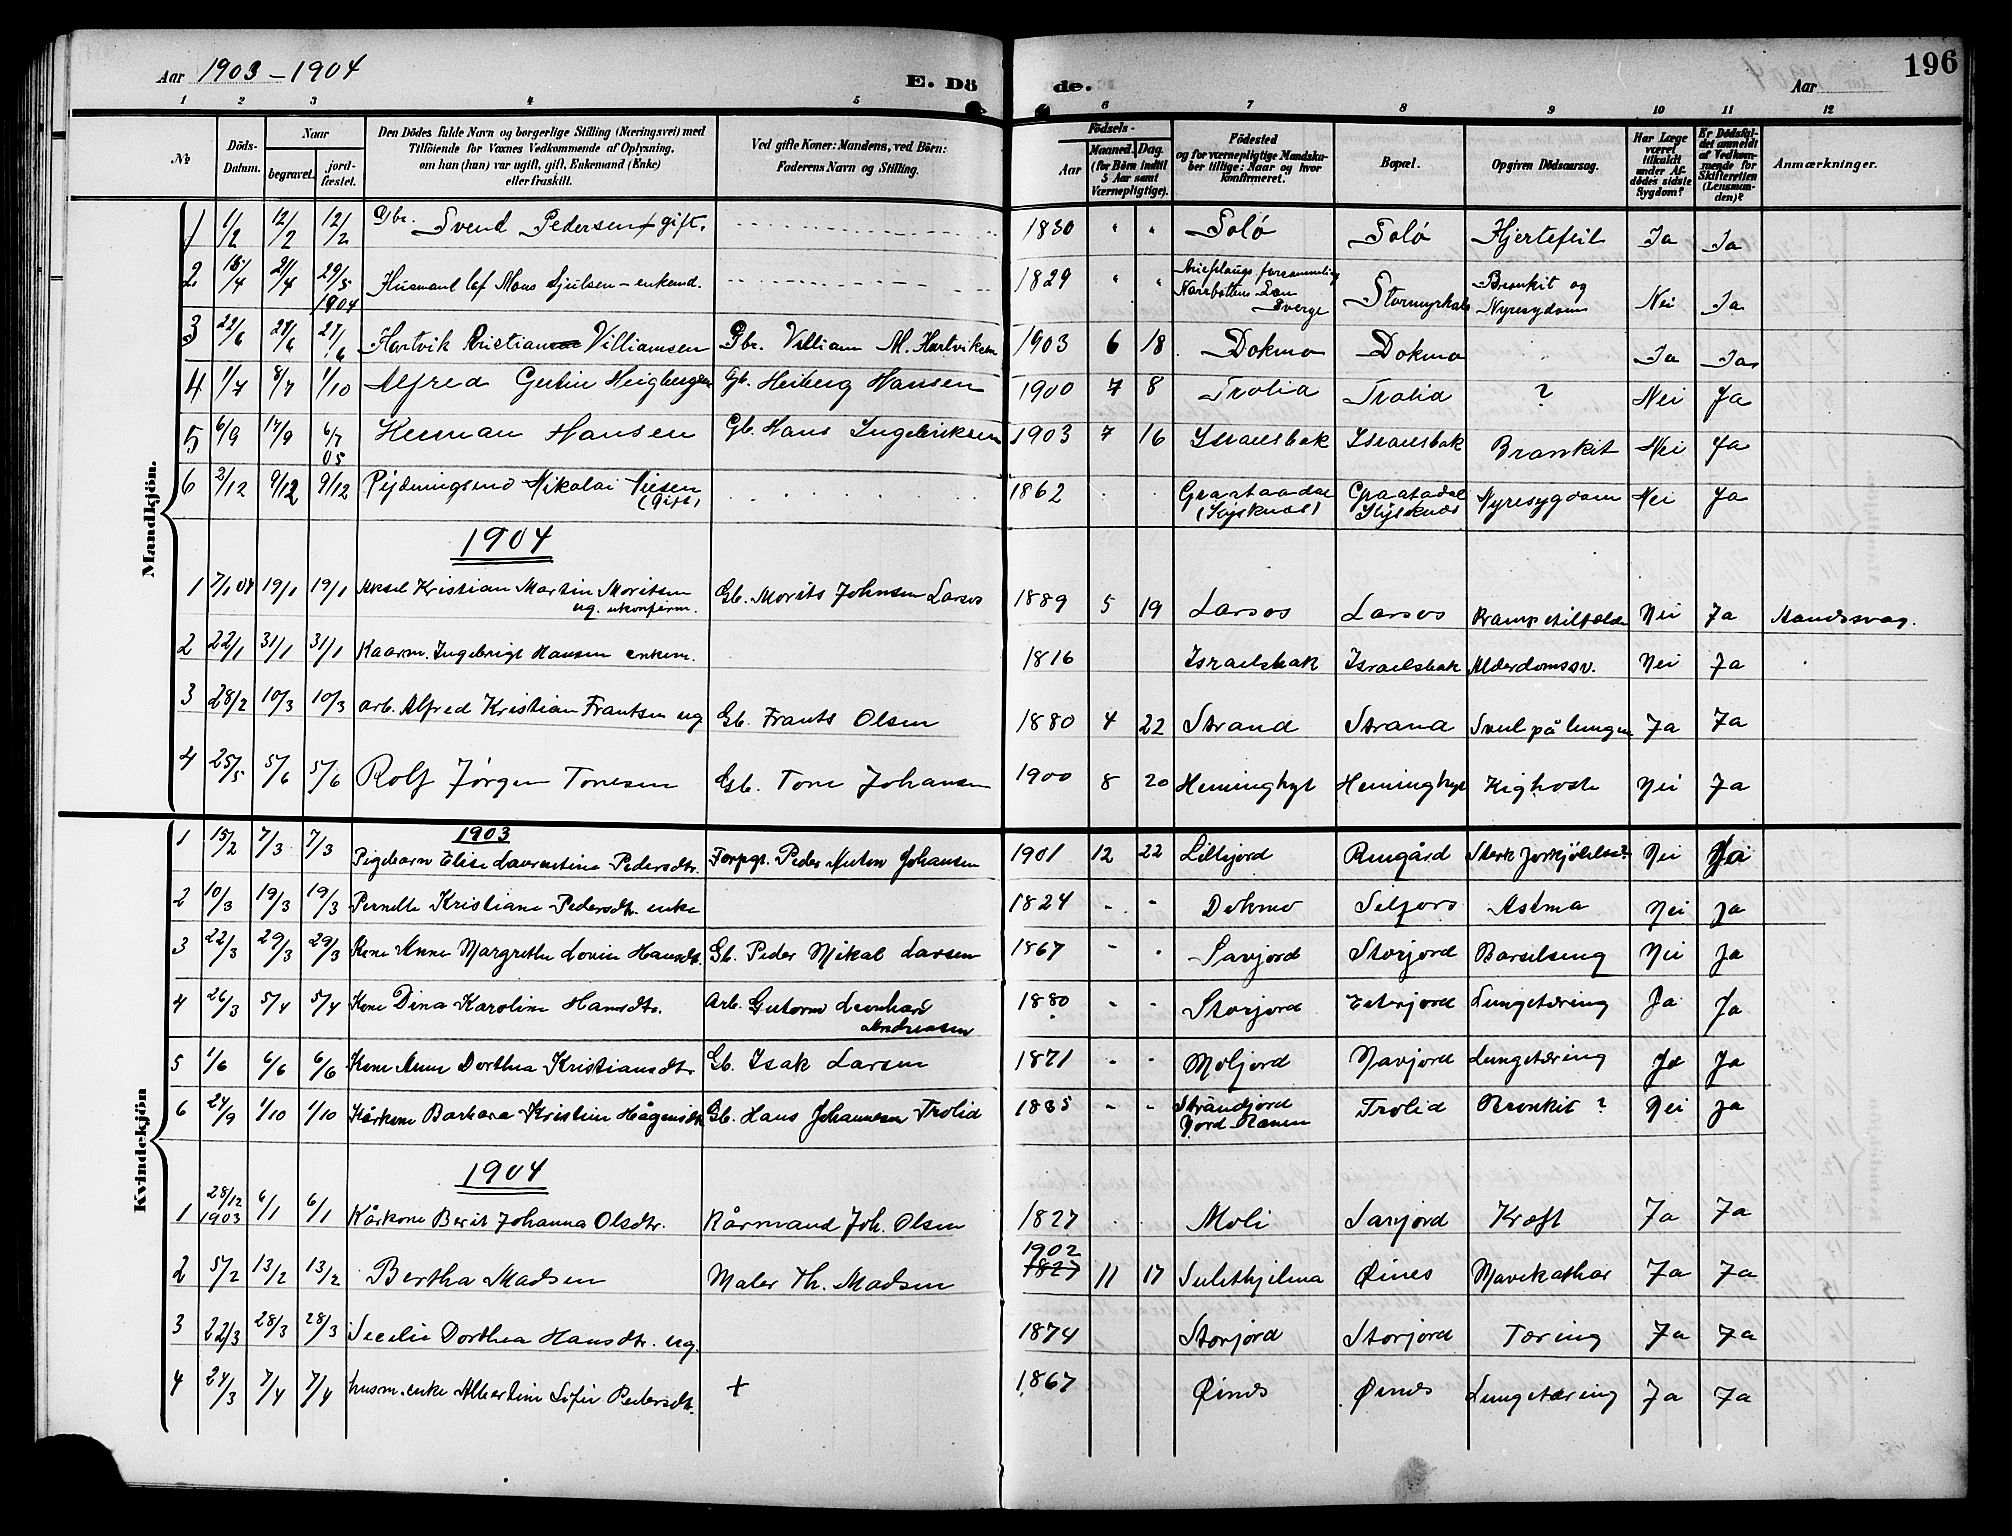 Aar 1903 - 1904
E. Döde.
Aar
196
1 2 3 4 5 6 7 8 9 10 11 12
No
Döds-Datum.
Naar
begravet.
jordfæstet.
Den Dödes fulde Navn og borgerlige Stilling (Næringsvei) med Tilföiende for Voxnes Vedkommende af Oplysning, om han (hun) var ugift, gift, Enkemand (Enke) eller fraskilt.
Ved gifte Koner: Mandens, ved Börn: Faderens Navn og Stilling.
Födsels-
Aar
Maaned. Dag.
(for Börn indtil 5 Aar samt Værnepligtige).
Födested og for værnepligtige Mandskaber tillige: Naar og hvor konfirmeret.
Bopæl.
Opgiven Dödsaarsag.
Har Læge været tilkaldt under Afdödes sidste Sygdom?
Er Dödsfaldet anmeldt af Vedkommende for Skifteretten (Lensmanden)?
Anmærkninger.
Mandkjön.
1 1/2 12/2 12/2 Gbr. Svend Pedersen gift. 1830 " " Solø Solø Hjertefeil Ja Ja
2 18/4 21/4 29/5 1904 Husmand Mons Sjulsen - enkemd. 1829 " " Norrbottens Län Sverge Bronkit og Nyresygdom Nei Ja
3 22/6 27/6 27/6 Hartvik Kristian Villiamsen Gbr. Villiam M. Hartviksen 1903 6 18 Dokmo Dokmo Ja Ja
4 1/7 8/7 1/10 Alfred Gb. Heiberg Hansen 1900 7 8 Trolia Trolid ? Nei Ja
5 6/9 17/9 6/7 05 Herman Hansen Gb. Hans Ingebriksen 1903 7 16 Israelsbak Israelsbak Bronkit Nei Ja
6 2/12 9/12 9/12 Nikolai (Gift) 1862 Graataadal Graatadal Nyresygdom Nei Ja
1904
1 7/1 04 19/1 19/1 Aksel Kristian Martin Moritsen ug. ukonferm. Gb. Morits Johnsen Larsos 1889 5 19 Larsos Larsos Krampetilfælde Nei Ja Aandssvag.
2 22/1 31/1 31/1 Kaarm. Ingebrigt Hansen enkem. 1816 Israelsbak Israelsbak Alderdomssv. Nei Ja
3 28/2 10/3 10/3 arb. Alfred Kristian Frantsen ug Gb. Frants Olsen 1880 4 22 Strand Strand Svul på lungen Ja Ja
4 25/5 5/6 5/6 Rolf Jørgen Tonesen Gb. Tone Johansen 1900 8 20 Heminghyt Heminghyt Kighoste Nei Ja
Kvindekjön
1903
1 15/2 7/3 7/3 Pigebarn Elise Laurentine Pedersdtr. Forpgt. Peder Anton Johansen 1901 12 22 Lillejord Rengård Sterk forkjölelse? Nei Ja
2 10/3 19/3 19/3 Pernelle Kristiane Pedersdtr. enke 1824 - - Dokmo Selfors Astma Nei Ja
3 22/3 29/3 29/3 Kone Anne Margrethe Lovise Hansdtr. Gb. Peder Mikal Larsen 1867 - - Savjord Storjord Barselseng Nei Ja
4 26/3 5/4 5/4 Kone Dina Karoline Hansdtr. Arb. Gutorm Leonhard Andreasen 1880 - - Storjord Eiterjord Lungetæring Ja Ja
5 1/6 6/6 6/6 Kone Anne Dorthea Kristiansdtr. Gb. Isak Larsen 1871 - - Moljord Navjord Lungetæring Ja Ja
6 24/9 1/10 1/10 Kårkone Barbara Kristine Hågensdtr Gb. Hans Johannesen Trolid 1835 - - Strandjord Nord Ranen Trolid Bronkit ? Nei Ja
1904
1 28/12 1903 6/1 6/1 Kårkone Berit Johanna Olsdtr. Kårmand Joh. Olsen 1827 Moli Savjord Kræft Ja Ja
2 5/2 13/2 13/2 Bertha Madsen Maler Th. Madsen 1902 1827 11 17 Sulithjelma Øines Mavekathar Ja Ja
3 22/3 28/3 28/3 Secelie Dorthea Hansdtr. ug. 1874 Storjord Storjord Tæring Ja Ja
4 24/3 7/4 7/4 husm. enke Albertine Sofie Pedersdtr. + 1867 Øines Øines Lungetæring Ja Ja